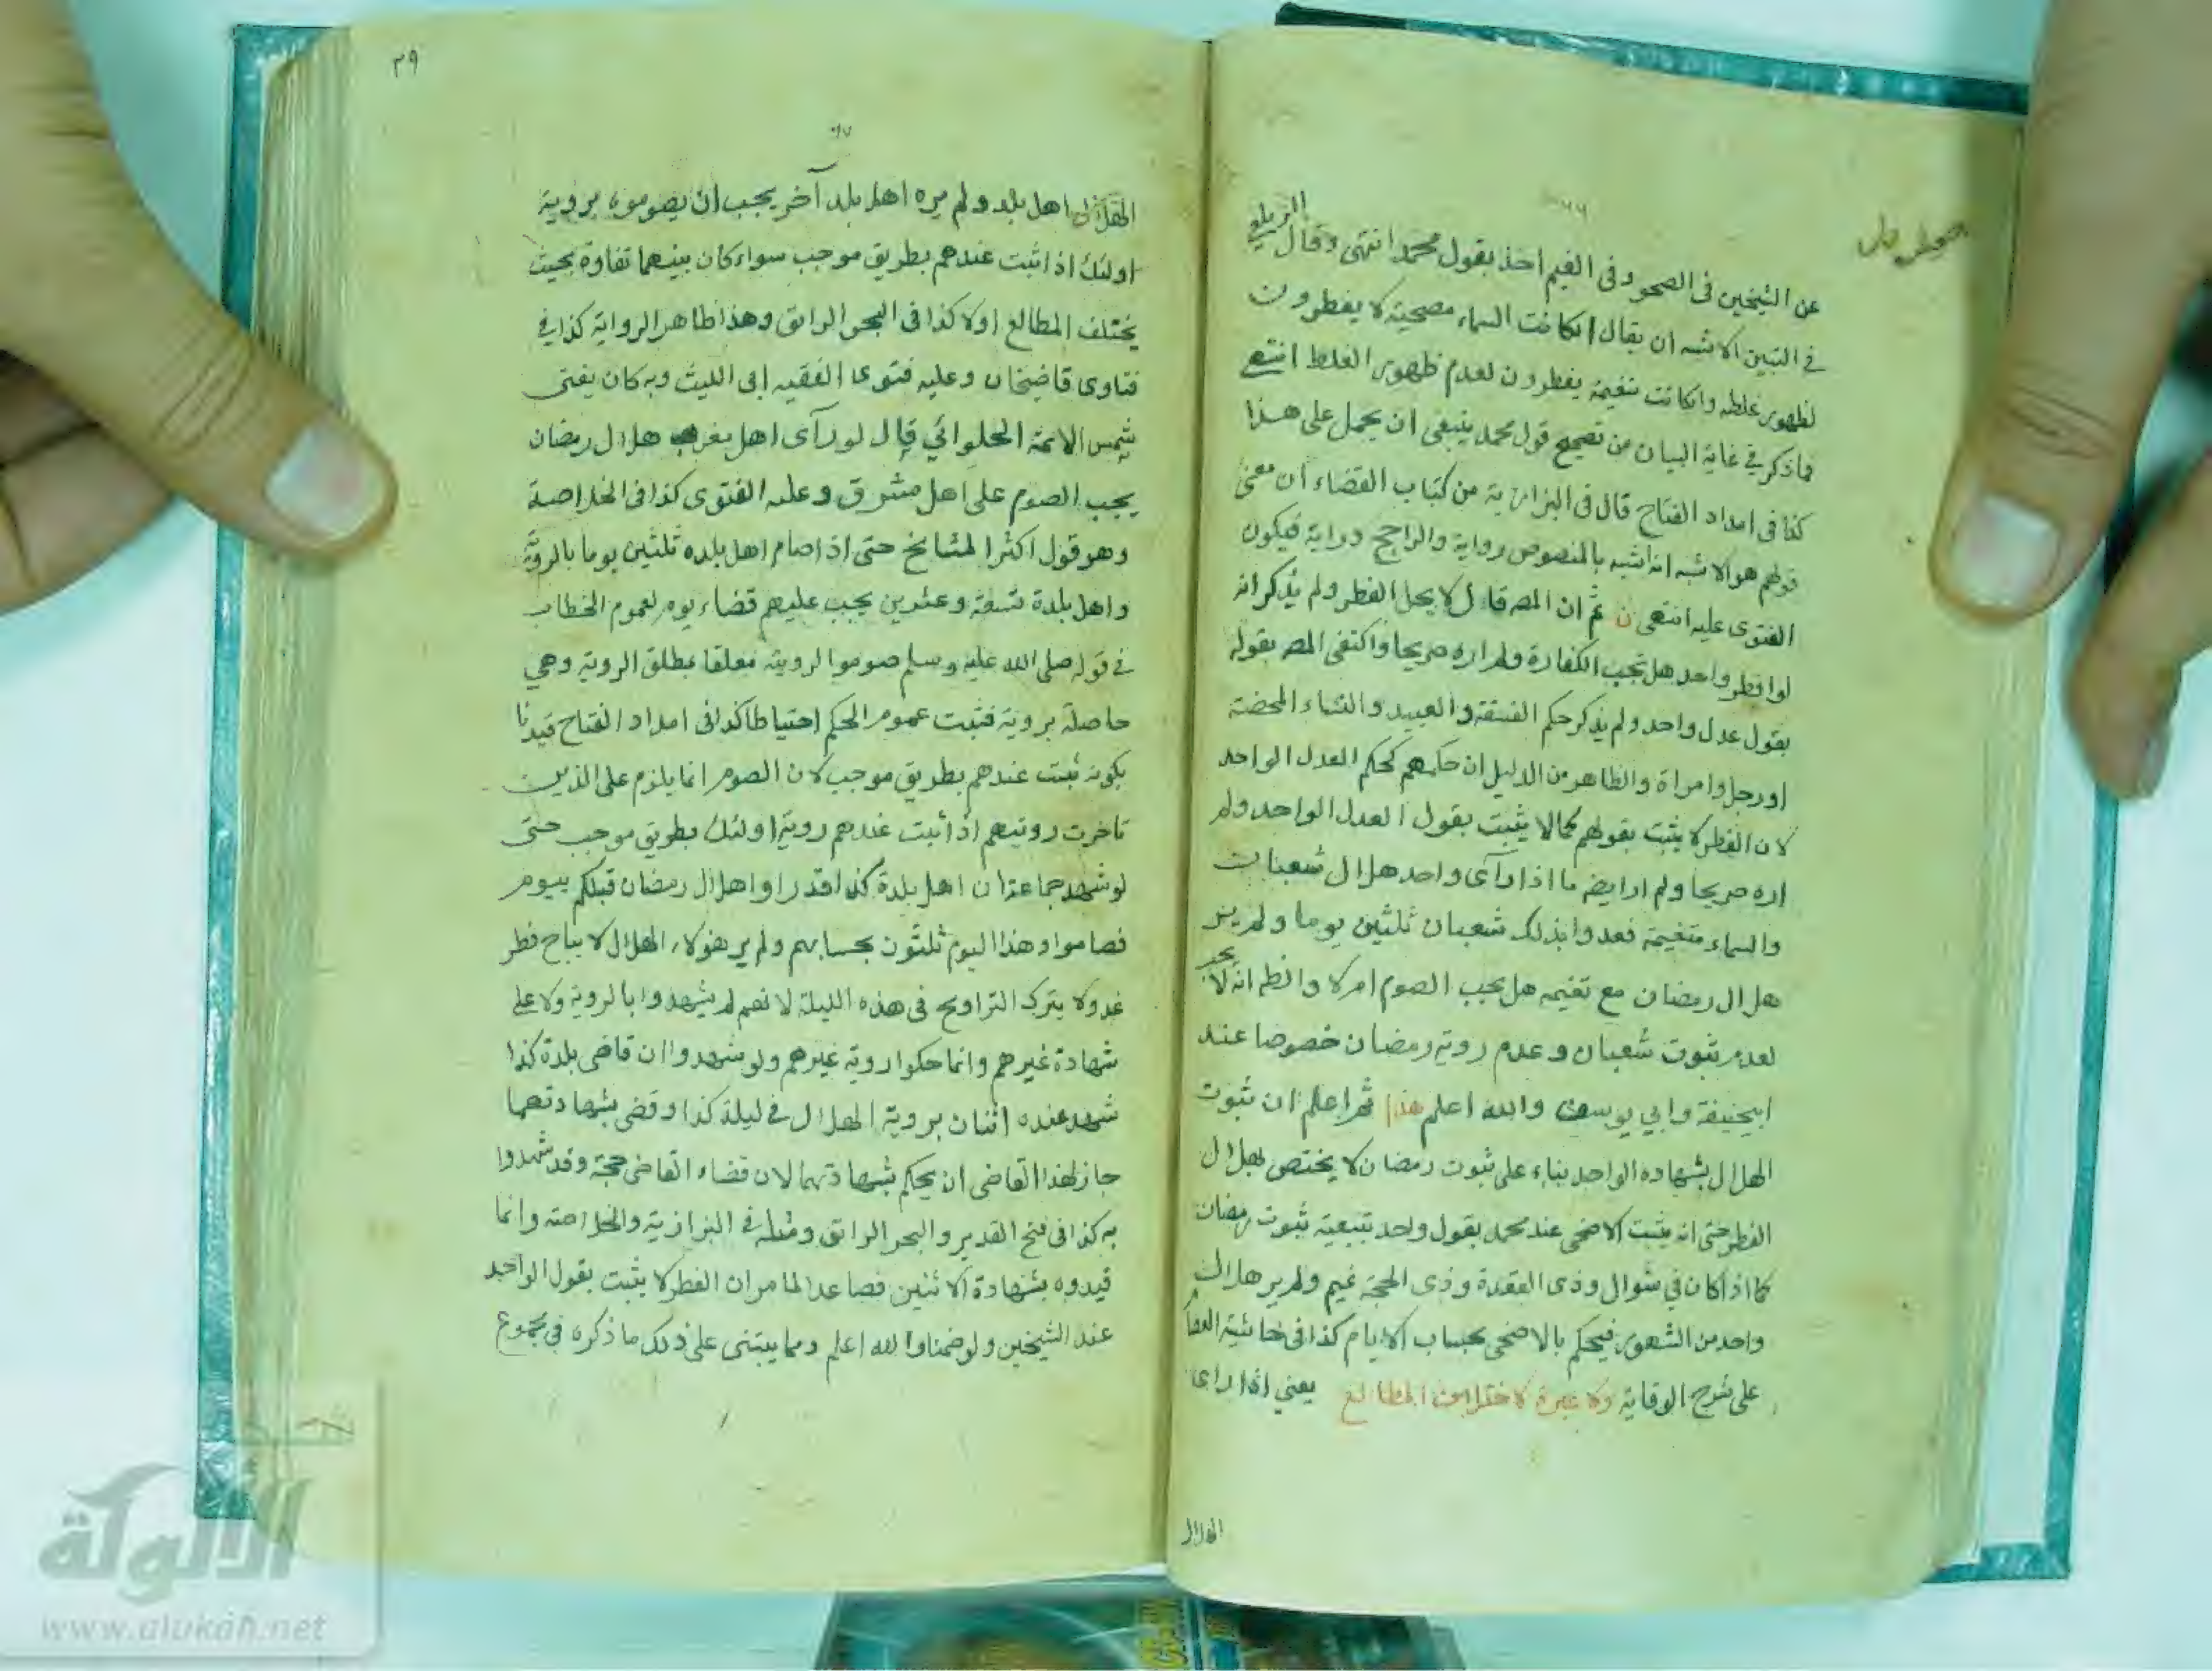 ٦٦
عن الشيخين فى الصحو وفى الغيم اخذ بقول محمد انتهى وقال الزيلعى
فى التبين الاشبه ان يقال انكانت السماء مصحية لا يفطرون
لظهور غلطه وانكانت متغيمة يفطرون لعدم ظهور الغلط انتهى
فما ذكر فى غاية البيان من تصحيح قول محمد ينبغى ان يحمل على هذا
كذا فى امداد الفتاح قال فى البزازية من كتاب القضاء ان معنى
قولهم هو الاشبه انه اشبه بالمنصوص رواية والراجح دراية فيكون
الفتوى عليه انتهى ثم ان المصـ قال لا يحل الفطر ولم يذكر انه
لو افطر واحد هل تجب الكفارة ولم اره صريحا واكتفى المصـ بقوله
بقول عدل واحد ولم يذكر حكم الفسقة والعبيد والنساء المحضة
او رجل وامراة والظاهر من الدليل ان حكمهم كحكم العدل الواحد
لان الفطر لا يثبت بقولهم كما لا يثبت بقول العدل الواحد ولم
اره صريحا ولم ار ايضه ما اذا رآى واحد هلال شعبان
والسماء متغيمة فعدوا بذلك شعبان ثلثين يوما ولم ير
هلال رمضان مع تغيمه هل يجب الصوم ام لا والظ انه لا يجب
لعدم ثبوت شعبان وعدم روية رمضان خصوصا عند
ابيحنيفة وابي يوسف والله اعلم هذا ثم اعلم ان ثبوت
الهلال بشهاده الواحد بناء على ثبوت رمضان لا يختص بهلال
الفطر حتى انه يثبت الاضحى عند محمد بقول واحد بتبعية ثبوت رمضان
كما اذا كان في شوال وذى القعدة وذى الحجة غيم ولم ير هلال
واحد من الشهور فيحكم بالاضحى بحساب الايام كذا فى حاشية العصام
على شرح الوقاية ولا عبرة لاختلاف المطالع يعني اذا راى
الهلال
٣٩
٦٧
الهلال اهل بلد ولم يره اهل بلد آخر يجب ان يصوموا بروية
اولئك اذا ثبت عندهم بطريق موجب سواء كان بينهما تفاوة بحيث
يختلف المطالع اولا كذا فى البحر الرائق وهذا ظاهر الرواية كذا في
فتاوى قاضيخان وعليه فتوى الفقيه ابى الليث وبه كان يفتى
شمس الائمة الحلوائي قال لو رآى اهل مغرب هلال رمضان
يجب الصوم على اهل مشرق وعليه الفتوى كذا فى الخلاصة
وهو قول اكثر المشايخ حتى اذا صام اهل بلده ثلثين يوما بالروية
واهل بلدة تسعة وعشرين يجب عليهم قضاء يوم لعموم الخطاب
في قوله صلى الله عليه وسلم صوموا لرويته معلقا بمطلق الروية وهي
حاصلة بروية فثبت عموم الحكم احتياطا كذا فى امداد الفتاح قيدنا
بكونه ثبت عندهم بطريق موجب لان الصوم انما يلزم على الذين
تاخرت رويتهم اذا ثبت عندهم روية اولئك بطريق موجب حتى
لو شهد جماعة ان اهل بلدة كذا قد راوا هلال رمضان قبلكم بيوم
فصاموا وهذا اليوم ثلثون بحسابهم ولم ير هؤلاء الهلال لا يباح فطر
غد ولا يترك التراويح فى هذه الليلة لانهم لم يشهدوا بالروية ولا على
شهادة غيرهم وانما حكوا روية غيرهم ولو شهدوا ان قاضى بلدة كذا
شهد عنده اثنان بروية الهلال في ليلة كذا وقضى بشهادتهما
جاز لهذا القاضى ان يحكم بشهادتهما لان قضاء القاضى حجة وقد شهدوا
به كذا فى فتح القدير والبحر الرائق ومثله في البزازية والخلاصة وانما
قيدوه بشهادة الاثنين فصاعدا لما مر ان الفطر لا يثبت بقول الواحد
عند الشيخين ولو ضمنا والله اعلم ومما يبتنى على ذلك ما ذكره في مجموع
الألوكة
www.alukah.net